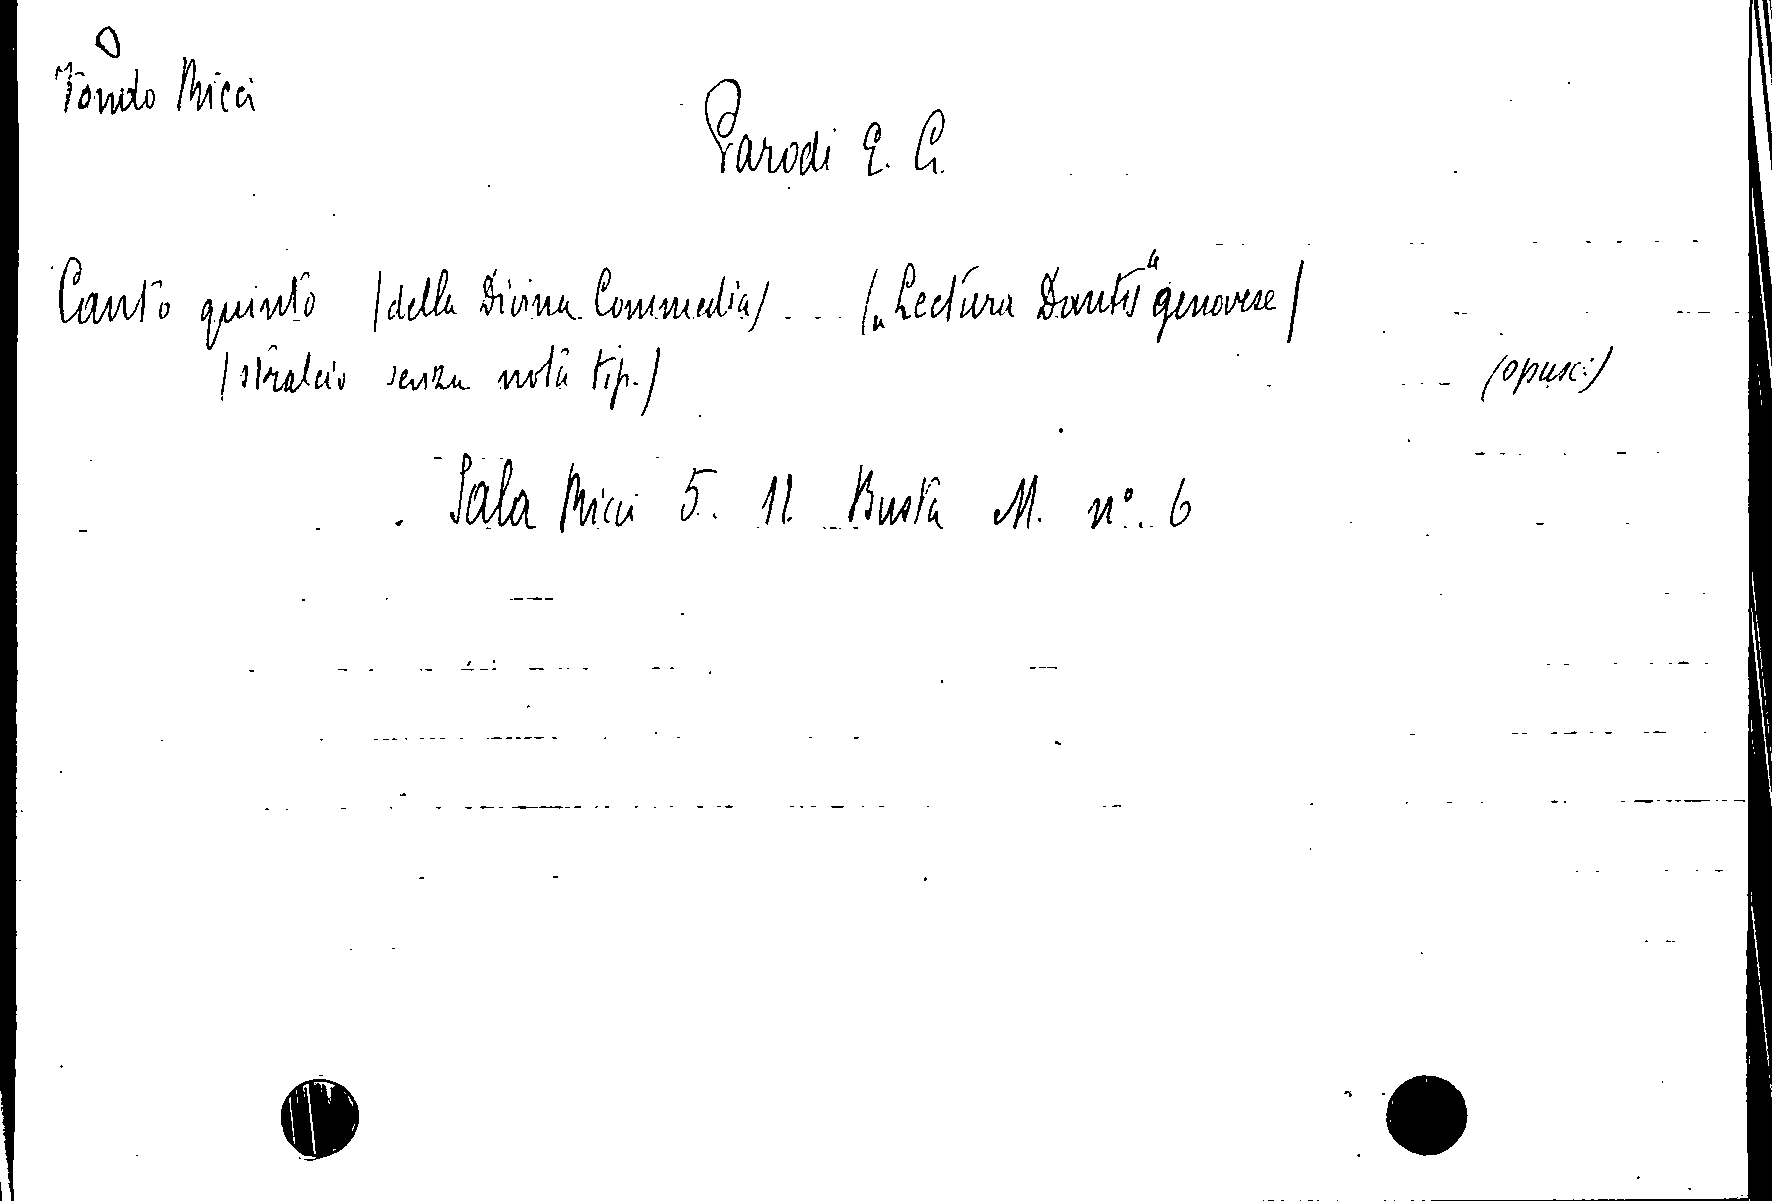 Fondo Ricci
Parodi E. G.
Canto quinto /della Divina Commedia/ /„Lectura Dantis“ genovese/
/stralcio senza nota tip./ (opusc:)
Sala Ricci 5. 11 Busta M. n°. 6